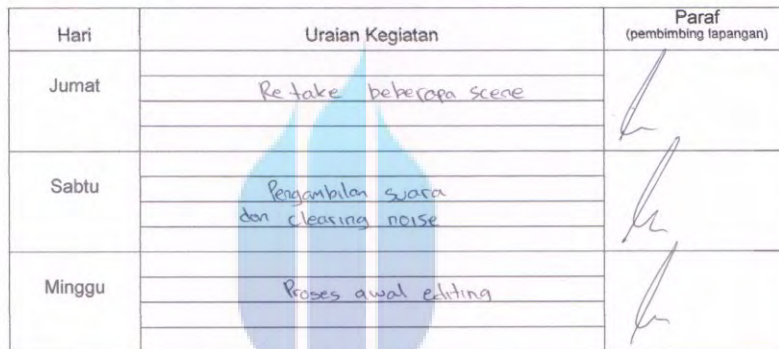 Hari Uraian Kegiatan Paraf
(pembimbing lapangan)
Jumat
Retake beberapa scene
Sabtu
Pengambilan suara
dan clearing noise
Minggu
Proses awal editing